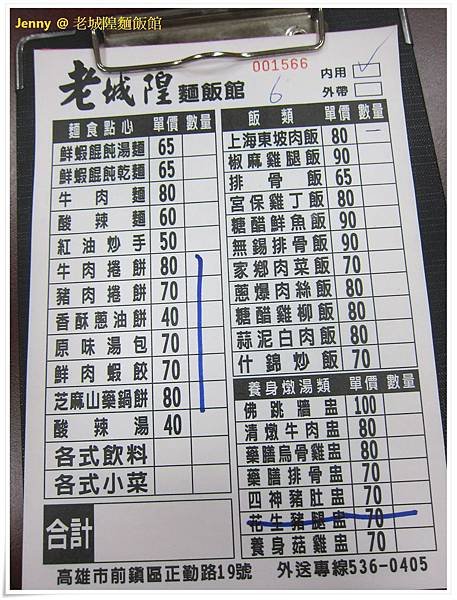 Jenny @ 老城隍麵飯館
001566
老城隍麵飯館
6
內用
外帶
麵食點心 單價 數量
鮮蝦餛飩湯麵 65
鮮蝦餛飩乾麵 65
牛肉麵 80
酸辣麵 60
紅油炒手 50
牛肉捲餅 80
豬肉捲餅 70
香酥蔥油餅 40
原味湯包 70
鮮肉蝦餃 70
芝麻山藥鍋餅 80
酸辣湯 40
各式飲料
各式小菜
合計
飯類 單價 數量
上海東坡肉飯 80 一
椒麻雞腿飯 90
排骨飯 65
宮保雞丁飯 80
糖醋鮮魚飯 90
無錫排骨飯 90
家鄉肉菜飯 70
蔥爆肉絲飯 80
糖醋雞柳飯 80
蒜泥白肉飯 80
什錦炒飯 70
養身燉湯類 單價 數量
佛跳牆盅 100
清燉牛肉盅 80
藥膳烏骨雞盅 80
藥膳排骨盅 70
四神豬肚盅 70
花生豬腿盅 70
養身菇雞盅 70
高雄市前鎮區正勤路19號 外送專線536-0405